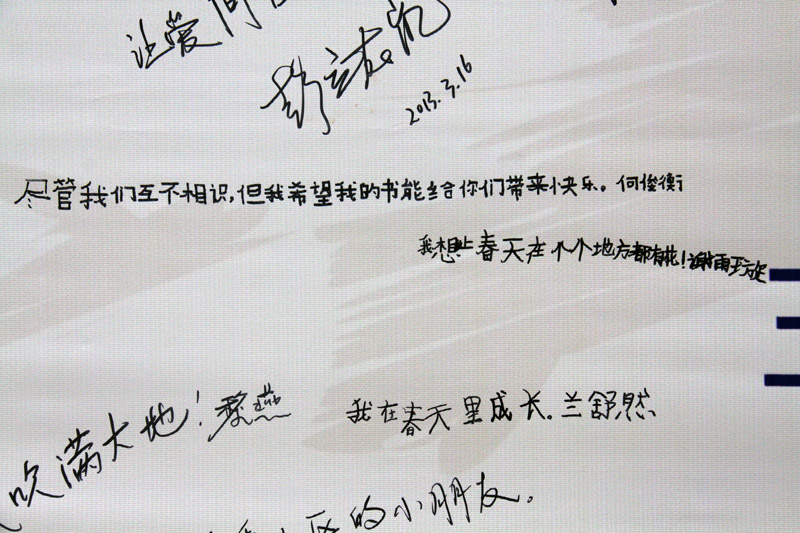 让爱
2013.3.16
尽管我们互不相识,但我希望我的书能给你们带来快乐。何俊衡
我想让春天在个个地方都有花!谢雨
吹满大地!黎燕
我在春天里成长.兰舒然
区的小朋友。